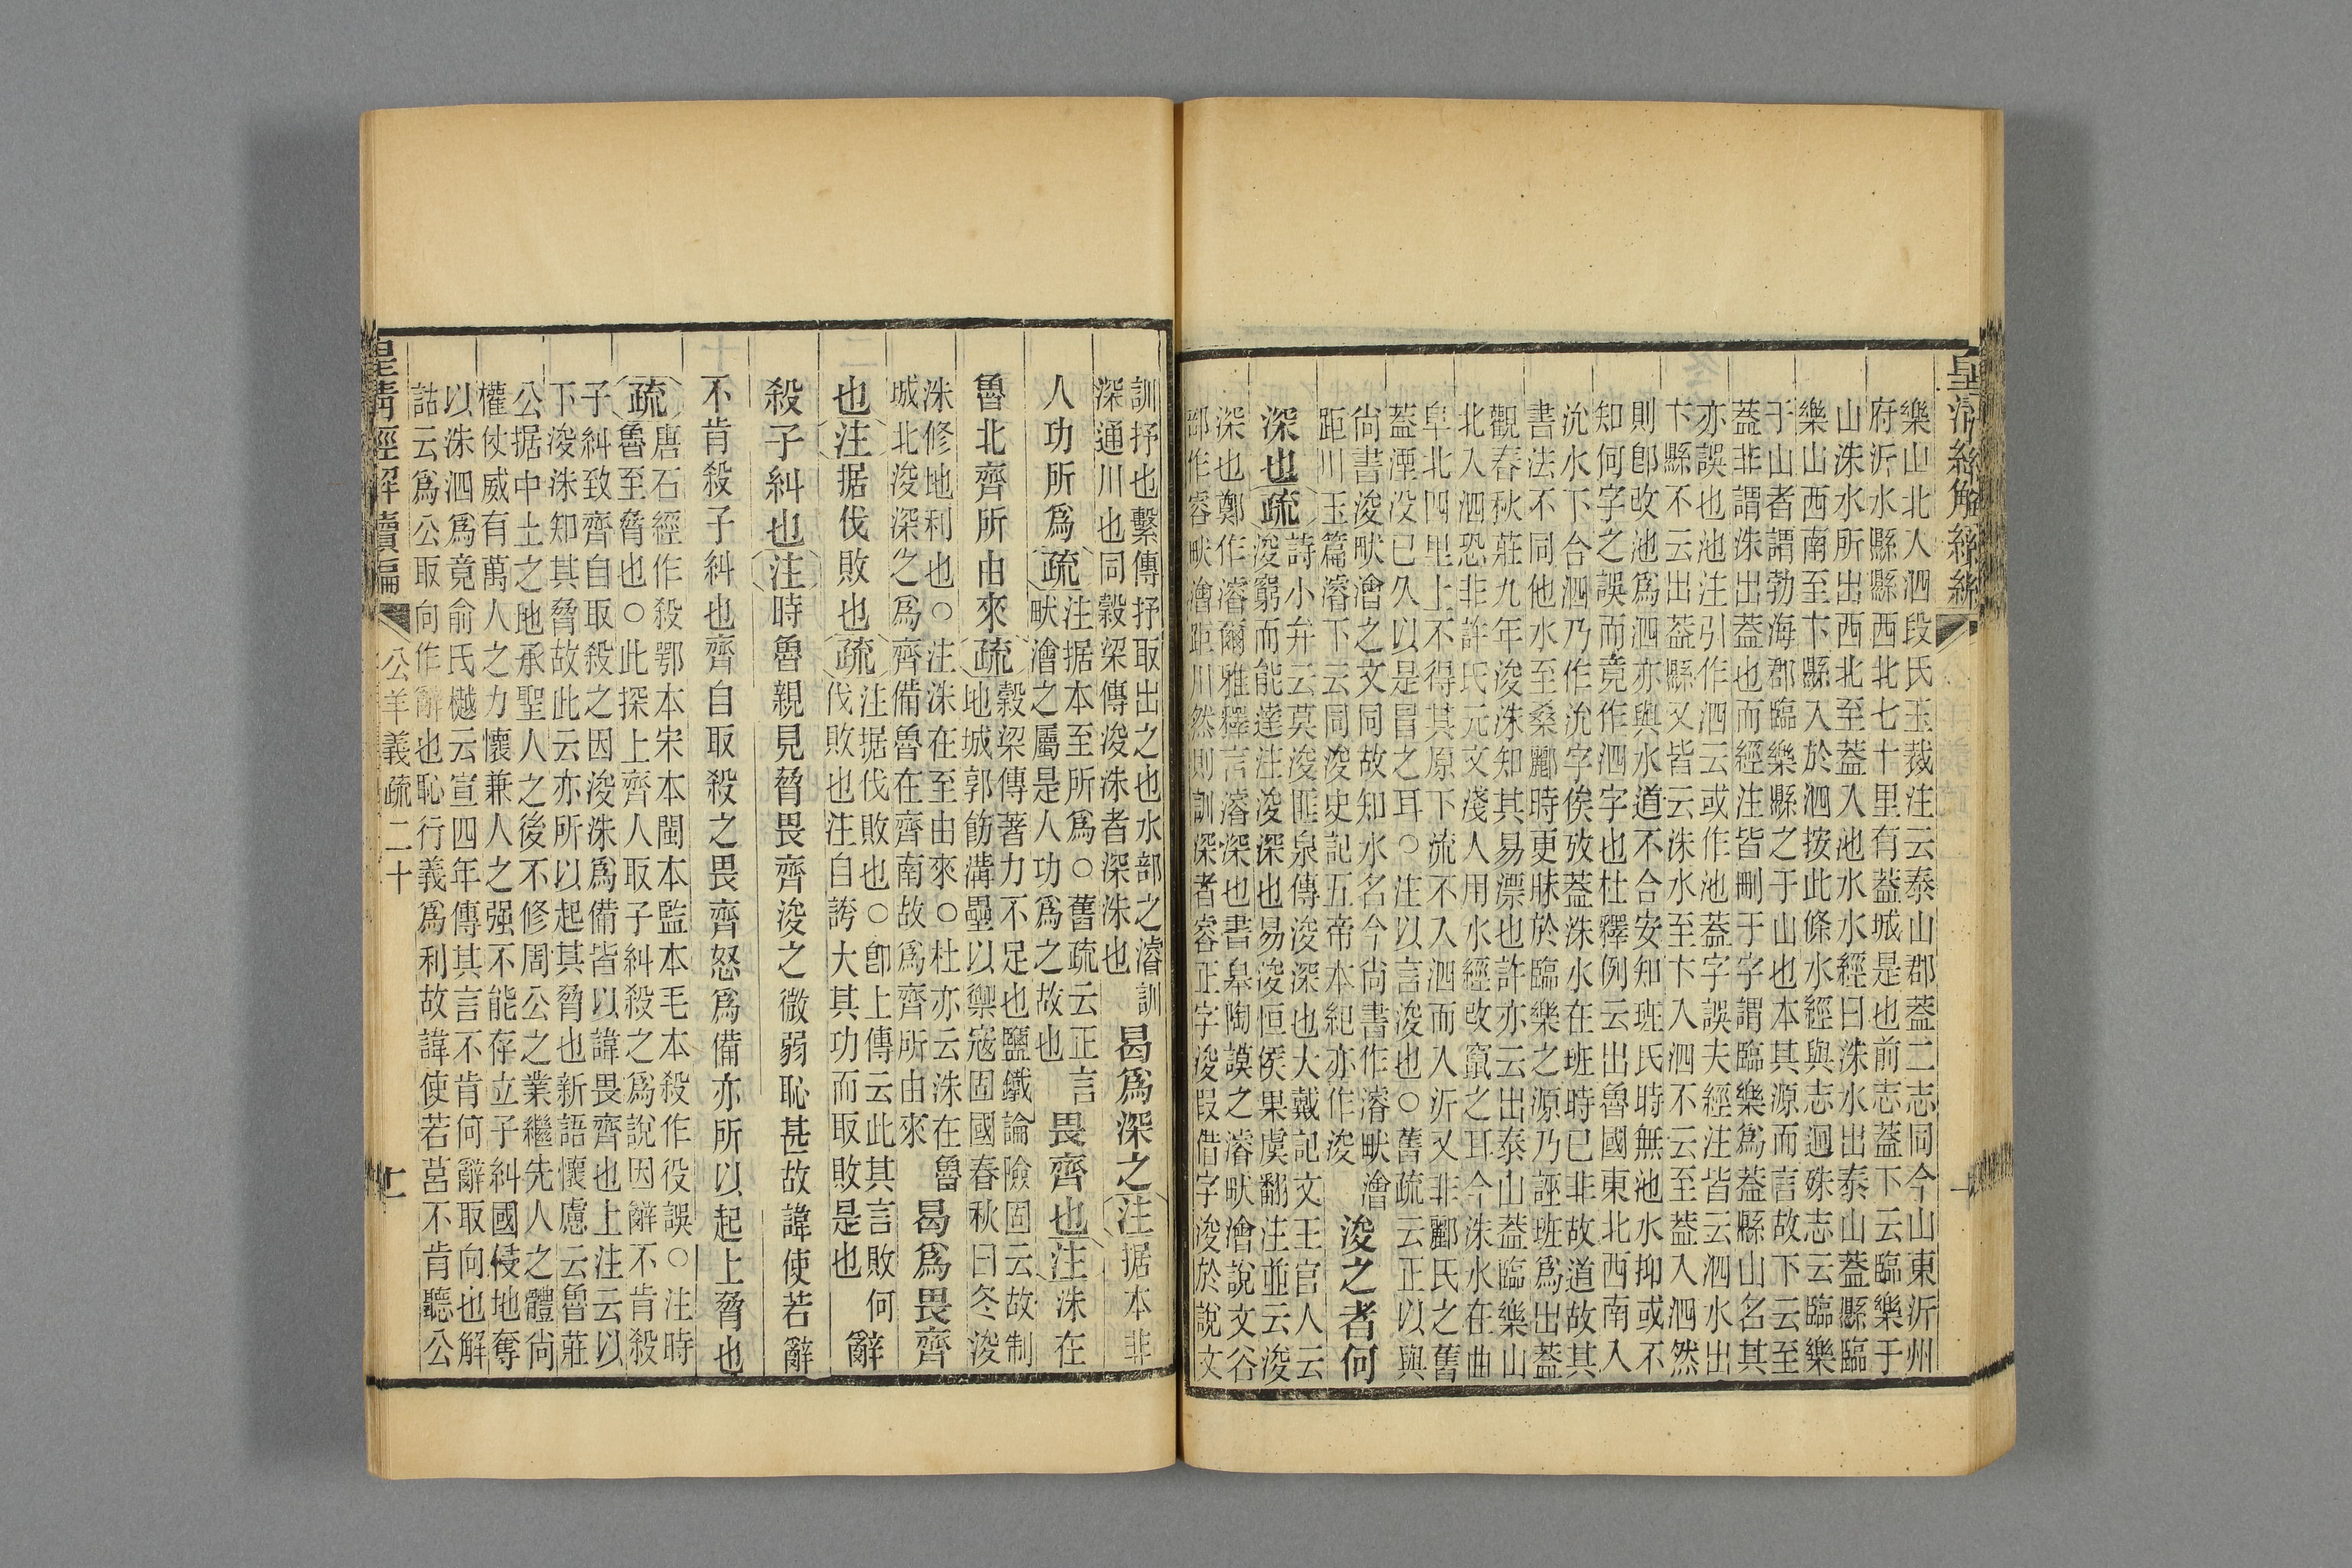 皇淸經解續編
樂山北入泗段氏玉裁注云泰山郡蓋二志同今山東沂州
府沂水縣縣西北七十里有蓋城是也前志蓋下云臨樂于
山洙水所出西北至蓋入池水水經曰洙水出泰山蓋縣臨
樂山西南至卞縣入於泗按此條水經與志迥殊志云臨樂
于山者謂勃海郡臨樂縣之于山也本其源而言故下云至
蓋非謂洙出蓋也而經注皆刪于字謂臨樂爲蓋縣山名其
亦誤也池注引作泗云或作池蓋字誤夫經注皆云泗水出
卞縣不云出蓋縣又皆云洙水至卞入泗不云至蓋入泗然
則卽改池爲泗亦與水道不合安知班氏時無池水抑或不
知何字之誤而竟作泗字也杜釋例云出魯國東北西南入
沇水下合泗乃作沇字俟攷蓋洙水在班時已非故道故其
書法不同他水至桑酈時更眽於臨樂之源乃誣班爲出蓋
觀春秋莊九年浚洙知其易漂也許亦云出泰山蓋臨樂山
北入泗恐非許氏元文淺人用水經改竄之耳今洙水在曲
阜北四里上不得其原下流不入泗而入沂又非酈氏之舊
蓋湮沒已久以是冒之耳○注以言浚也○舊疏云正以與
尙書浚畎澮之文同故知水名今尙書作濬畎澮
距川玉篇濬下云同浚史記五帝本紀亦作浚
浚之者何
深也疏
詩小弁云莫浚匪泉傳浚深也大戴記文王官人云
浚窮而能達注浚深也易浚恒侯果虞翻注並云浚
深也鄭作濬爾雅釋言濬深也書皋陶謨之濬畎澮說文谷
部作容畎澮距川然則訓深者容正字浚叚借字浚於說文
訓抒也繫傳抒取出之也水部之濬訓
深通川也同穀梁傳浚洙者深洙也
曷爲深之注据本非
人功所爲疏
注据本至所爲○舊疏云正言
畎澮之屬是人功爲之故也
畏齊也注洙在
魯北齊所由來疏
穀梁傳著力不足也鹽鐵論險固云故制
地城郭飭溝壘以禦寇固國春秋曰冬浚
洙修地利也○注洙在至由來○杜亦云洙在魯
城北浚深之爲齊備魯在齊南故爲齊所由來
曷爲畏齊
也注据伐敗也疏
注据伐敗也○卽上傳云此其言敗何
伐敗也注自誇大其功而取敗是也
辭
殺子糾也注時魯親見脅畏齊浚之微弱恥甚故諱使若辭
不肯殺子糾也齊自取殺之畏齊怒爲備亦所以起上脅也
疏
唐石經作殺鄂本宋本閩本監本毛本殺作役誤○注時
魯至脅也○此探上齊人取子糾殺之爲說因辭不肯殺
子糾致齊自取殺之因浚洙爲備皆以諱畏齊也上注云以
下浚洙知其脅故此云亦所以起其脅也新語懷慮云魯莊
公据中土之地承聖人之後不修周公之業繼先人之體尙
權仗威有萬人之力懷兼人之强不能存立子糾國侵地奪
以洙泗爲竟俞氏樾云宣四年傳其言不肯何辭取向也解
詁云爲公取向作辭也恥行義爲利故諱使若莒不肯聽公
皇淸經解續編
公羊義疏二十